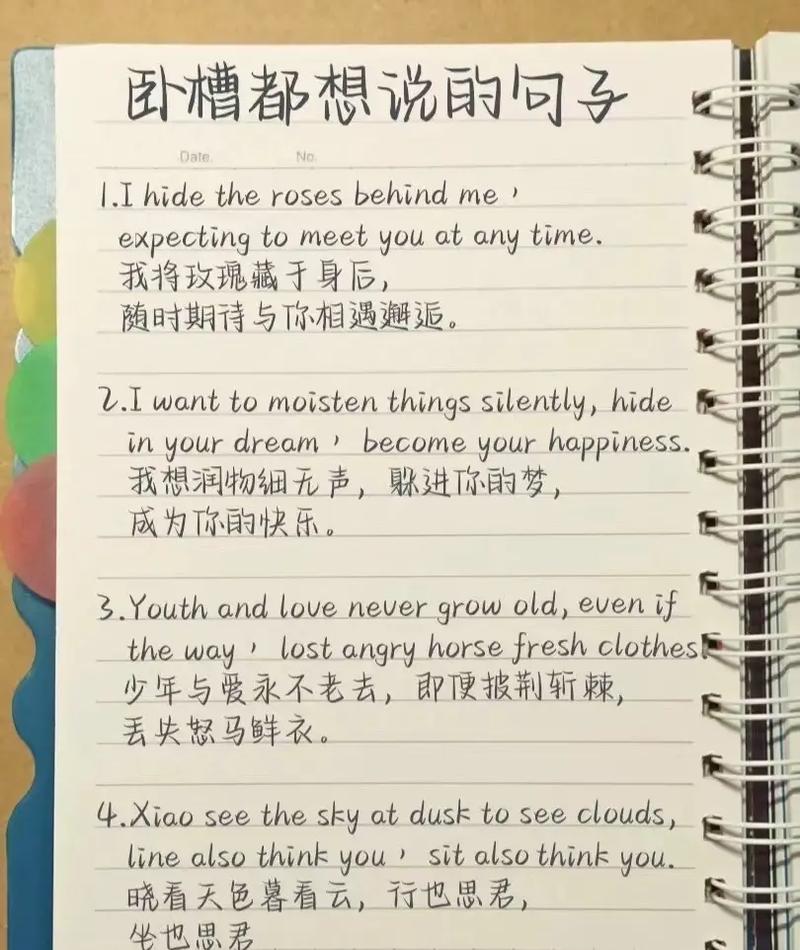 卧槽都想说的句子
Date. No.
1.I hide the roses behind me，
expecting to meet you at any time.
我将玫瑰藏于身后，
随时期待与你相遇邂逅。
2.I want to moisten things silently, hide
in your dream， become your happiness.
我想润物细无声，躲进你的梦，
成为你的快乐。
3.Youth and love never grow old, even if
the way， lost angry horse fresh clothes.
少年与爱永不老去，即便披荆斩棘，
丢失怒马鲜衣。
4.Xiao see the sky at dusk to see clouds,
line also think you， sit also think you.
晓看天色暮看云，行也思君，
坐也思君